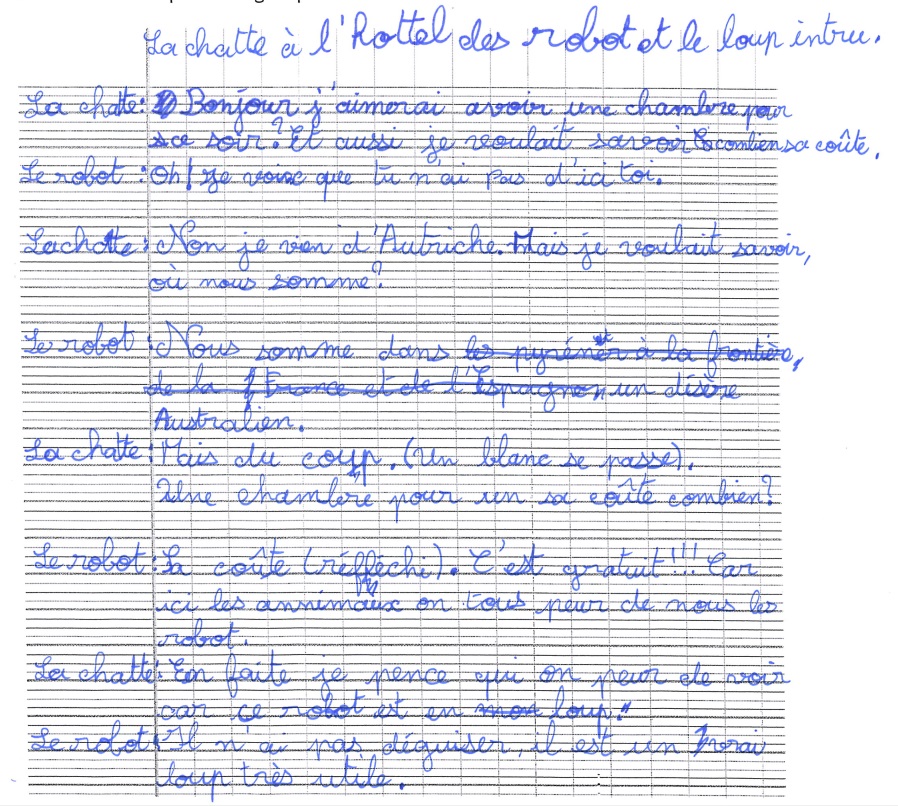 La chatte à l'Hottel des robot et le loup intru.
La chatte: Bonjour j'aimerai avoir une chambre pour
sa soir? Et aussi je voulait savoir combien sa coûte.
Le robot : Oh! Je voix que tu n'ai pas d'ici toi.
La chatte: Non je vien d'Autriche. Mais je voulait savoir,
où nous somme?
Le robot : Nous somme dans les pyrénér à la frontière,
de la France et de l'Espagne, un désère
Australien.
La chatte: Mais du coup. (Un blanc se passe).
Une chambre pour un sa coûte combien?
Le robot: Sa coûte (réfléchi). C'est gratuit!!! Car
ici les annimaux on tous peur de nous les
robot.
La chatte: En faite je pence qui on peur de voir
car ce robot est en mon loup."
Le robot: Il n'ai pas déguiser, il est un vrai
loup très utile.